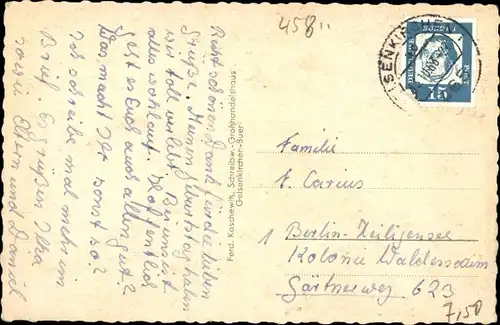 458
Recht schönen Dank für die lieben
Grüße. Meinen Geburtstag haben
wir toll verlebt. Bei uns ist
alles wohlauf. Hoffentlich
geht es Euch auch allen gut?
Was macht Ihr sonst so?
Ich schreibe mal mehr im
Brief. Es grüßen Ilka
sowie Eltern und Daniel
Ferd. Koschewitz, Schreibw.-Großhandelshaus
Gelsenkirchen-Buer
DEUTSCHE BUNDESPOST
15
Familie
F. Carius
1 Berlin-Heiligensee
Kolonie Waldessaum
Gärtnerweg 623
7,50